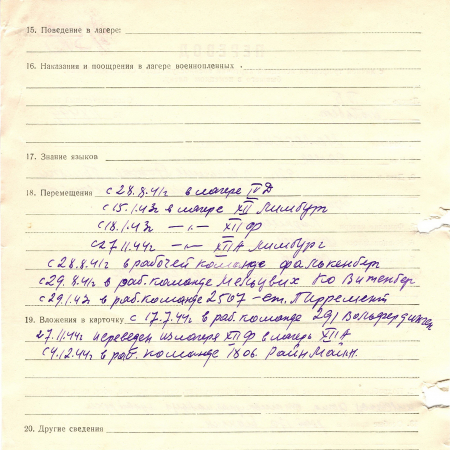 15. Поведение в лагере:
16. Наказания и поощрения в лагере военнопленных
17. Знание языков
18. Перемещения с 28.8.41г в лагере IV Д
с 15.1.43г в лагере XII Лимбург
с 18.1.43г —„— XII Ф
с 27.11.44г —„— XII А Лимбург
с 28.8.41г в рабочей команде Фалькенберг
с 29.8.41г в раб. команде Ко Витенберг
с 29.1.43г в раб. команде 2507 - ст.
19. Вложения в карточку с 17.7.44г в раб. команде 291
27.11.44г переведен из лагеря XII Ф в лагерь XII А
с 4.12.44г в раб. команде Райн Майн.
20. Другие сведения